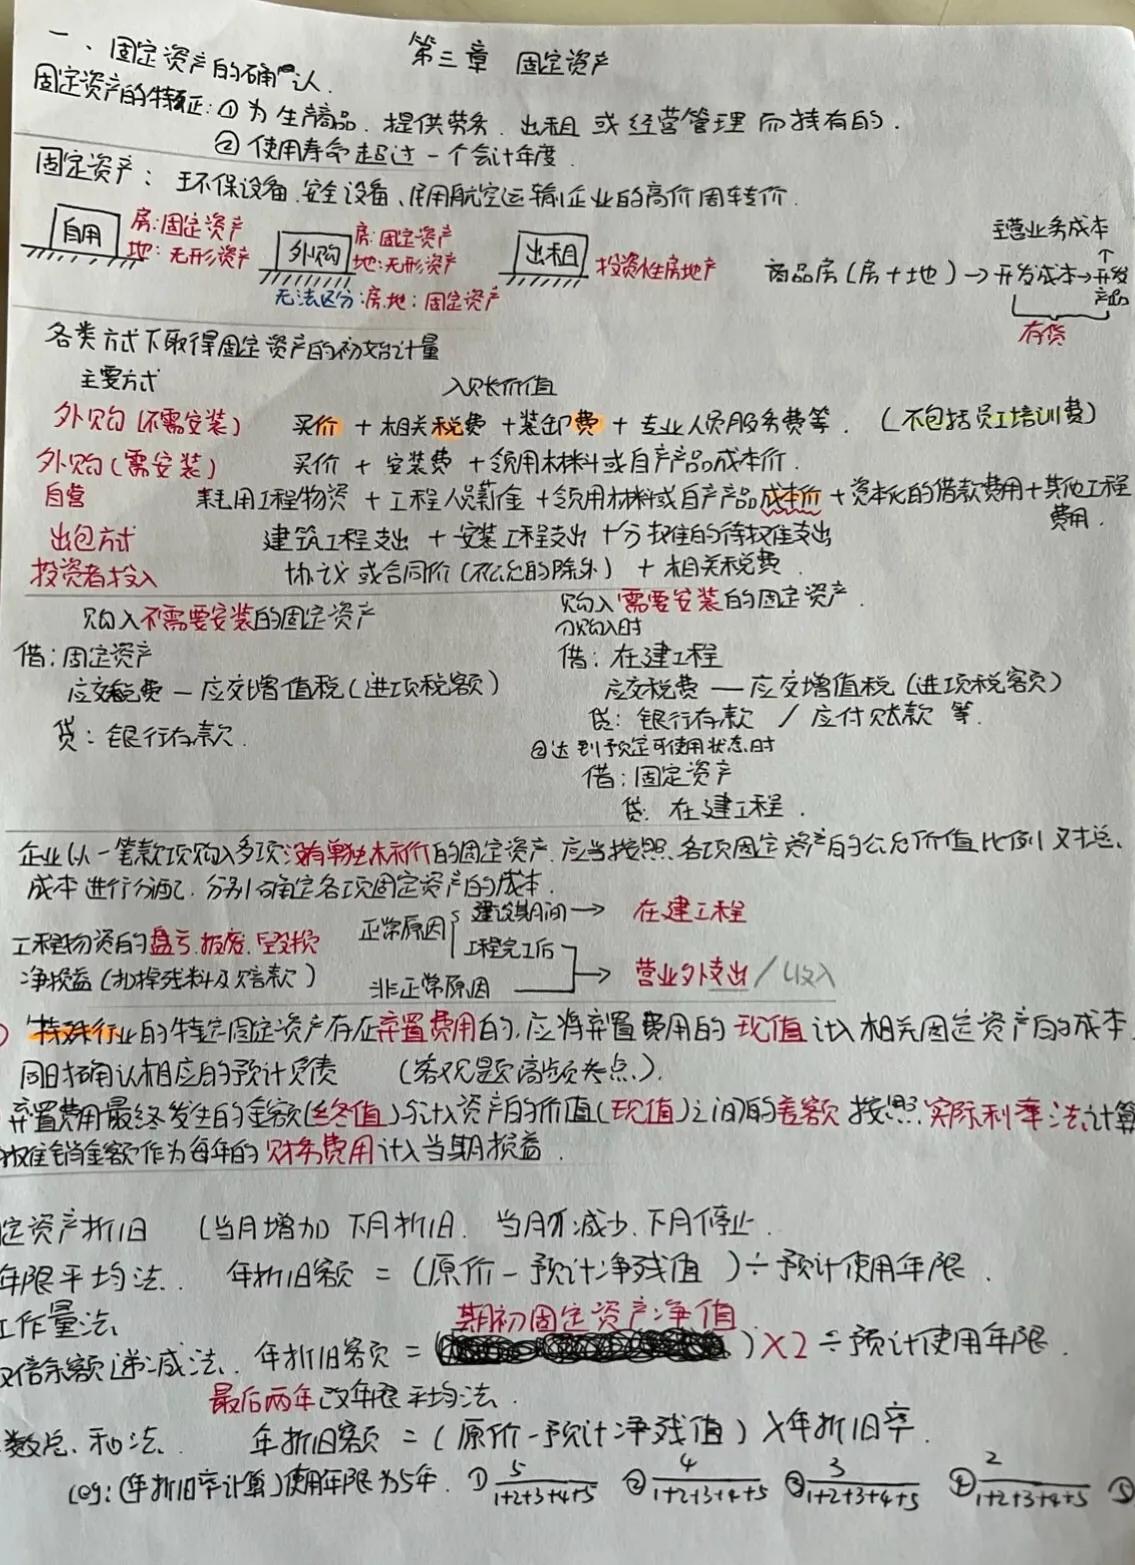 第三章 固定资产
一、固定资产的确认.
固定资产的特征:①为生产商品、提供劳务、出租或经营管理而持有的.
②使用寿命超过一个会计年度.
固定资产:环保设备、安全设备、民用航空运输企业的高价周转价.
自用 房:固定资产
地:无形资产
外购 房:固定资产
地:无形资产
无法区分:房地:固定资产
出租 投资性房地产
主营业务成本
↑
商品房(房+地)→开发成本→开发产品
存货
各类方式下取得固定资产的初始计量
主要方式 入账价值
外购(不需安装) 买价+相关税费+装卸费+专业人员服务费等.(不包括员工培训费)
外购(需安装) 买价+安装费+领用材料或自产产品成本价.
自营 耗用工程物资+工程人员薪金+领用材料或自产产品成本价+资本化的借款费用+其他工程
费用.
出包方式 建筑工程支出+安装工程支出+分摊的待摊支出
投资者投入 协议或合同价(不公允的除外)+相关税费.
购入不需要安装的固定资产
借:固定资产
应交税费—应交增值税(进项税额)
贷:银行存款.
购入需要安装的固定资产.
①购入时
借:在建工程
应交税费—应交增值税(进项税额)
贷:银行存款/应付账款等.
②达到预定可使用状态时
借:固定资产
贷:在建工程.
企业以一笔款项购入多项没有单独标价的固定资产.应当按照各项固定资产的公允价值比例对总
成本进行分配,分别确定各项固定资产的成本.
工程物资的盘亏.报废.毁损
净损益(扣掉残料及赔款)
正常原因 建设期间→ 在建工程
工程完工后
非正常原因 → 营业外支出/收入
特殊行业的特定固定资产存在弃置费用的,应将弃置费用的现值计入相关固定资产的成本
同时确认相应的预计负债 (客观题高频考点.).
弃置费用最终发生的金额(终值)与计入资产的价值(现值)之间的差额按照实际利率法计算
摊销金额作为每年的财务费用计入当期损益.
定资产折旧 (当月增加)下月折旧.当月减少.下月停止.
年限平均法. 年折旧额=(原价-预计净残值)÷预计使用年限.
工作量法
期初固定资产净值
双倍余额递减法. 年折旧额=( )×2÷预计使用年限.
最后两年改年限平均法.
数总和法. 年折旧额=(原价-预计净残值)×年折旧率.
(eg:(年折旧率计算)使用年限为5年. ①5/1+2+3+4+5 ②4/1+2+3+4+5 ③3/1+2+3+4+5 ④2/1+2+3+4+5 ⑤